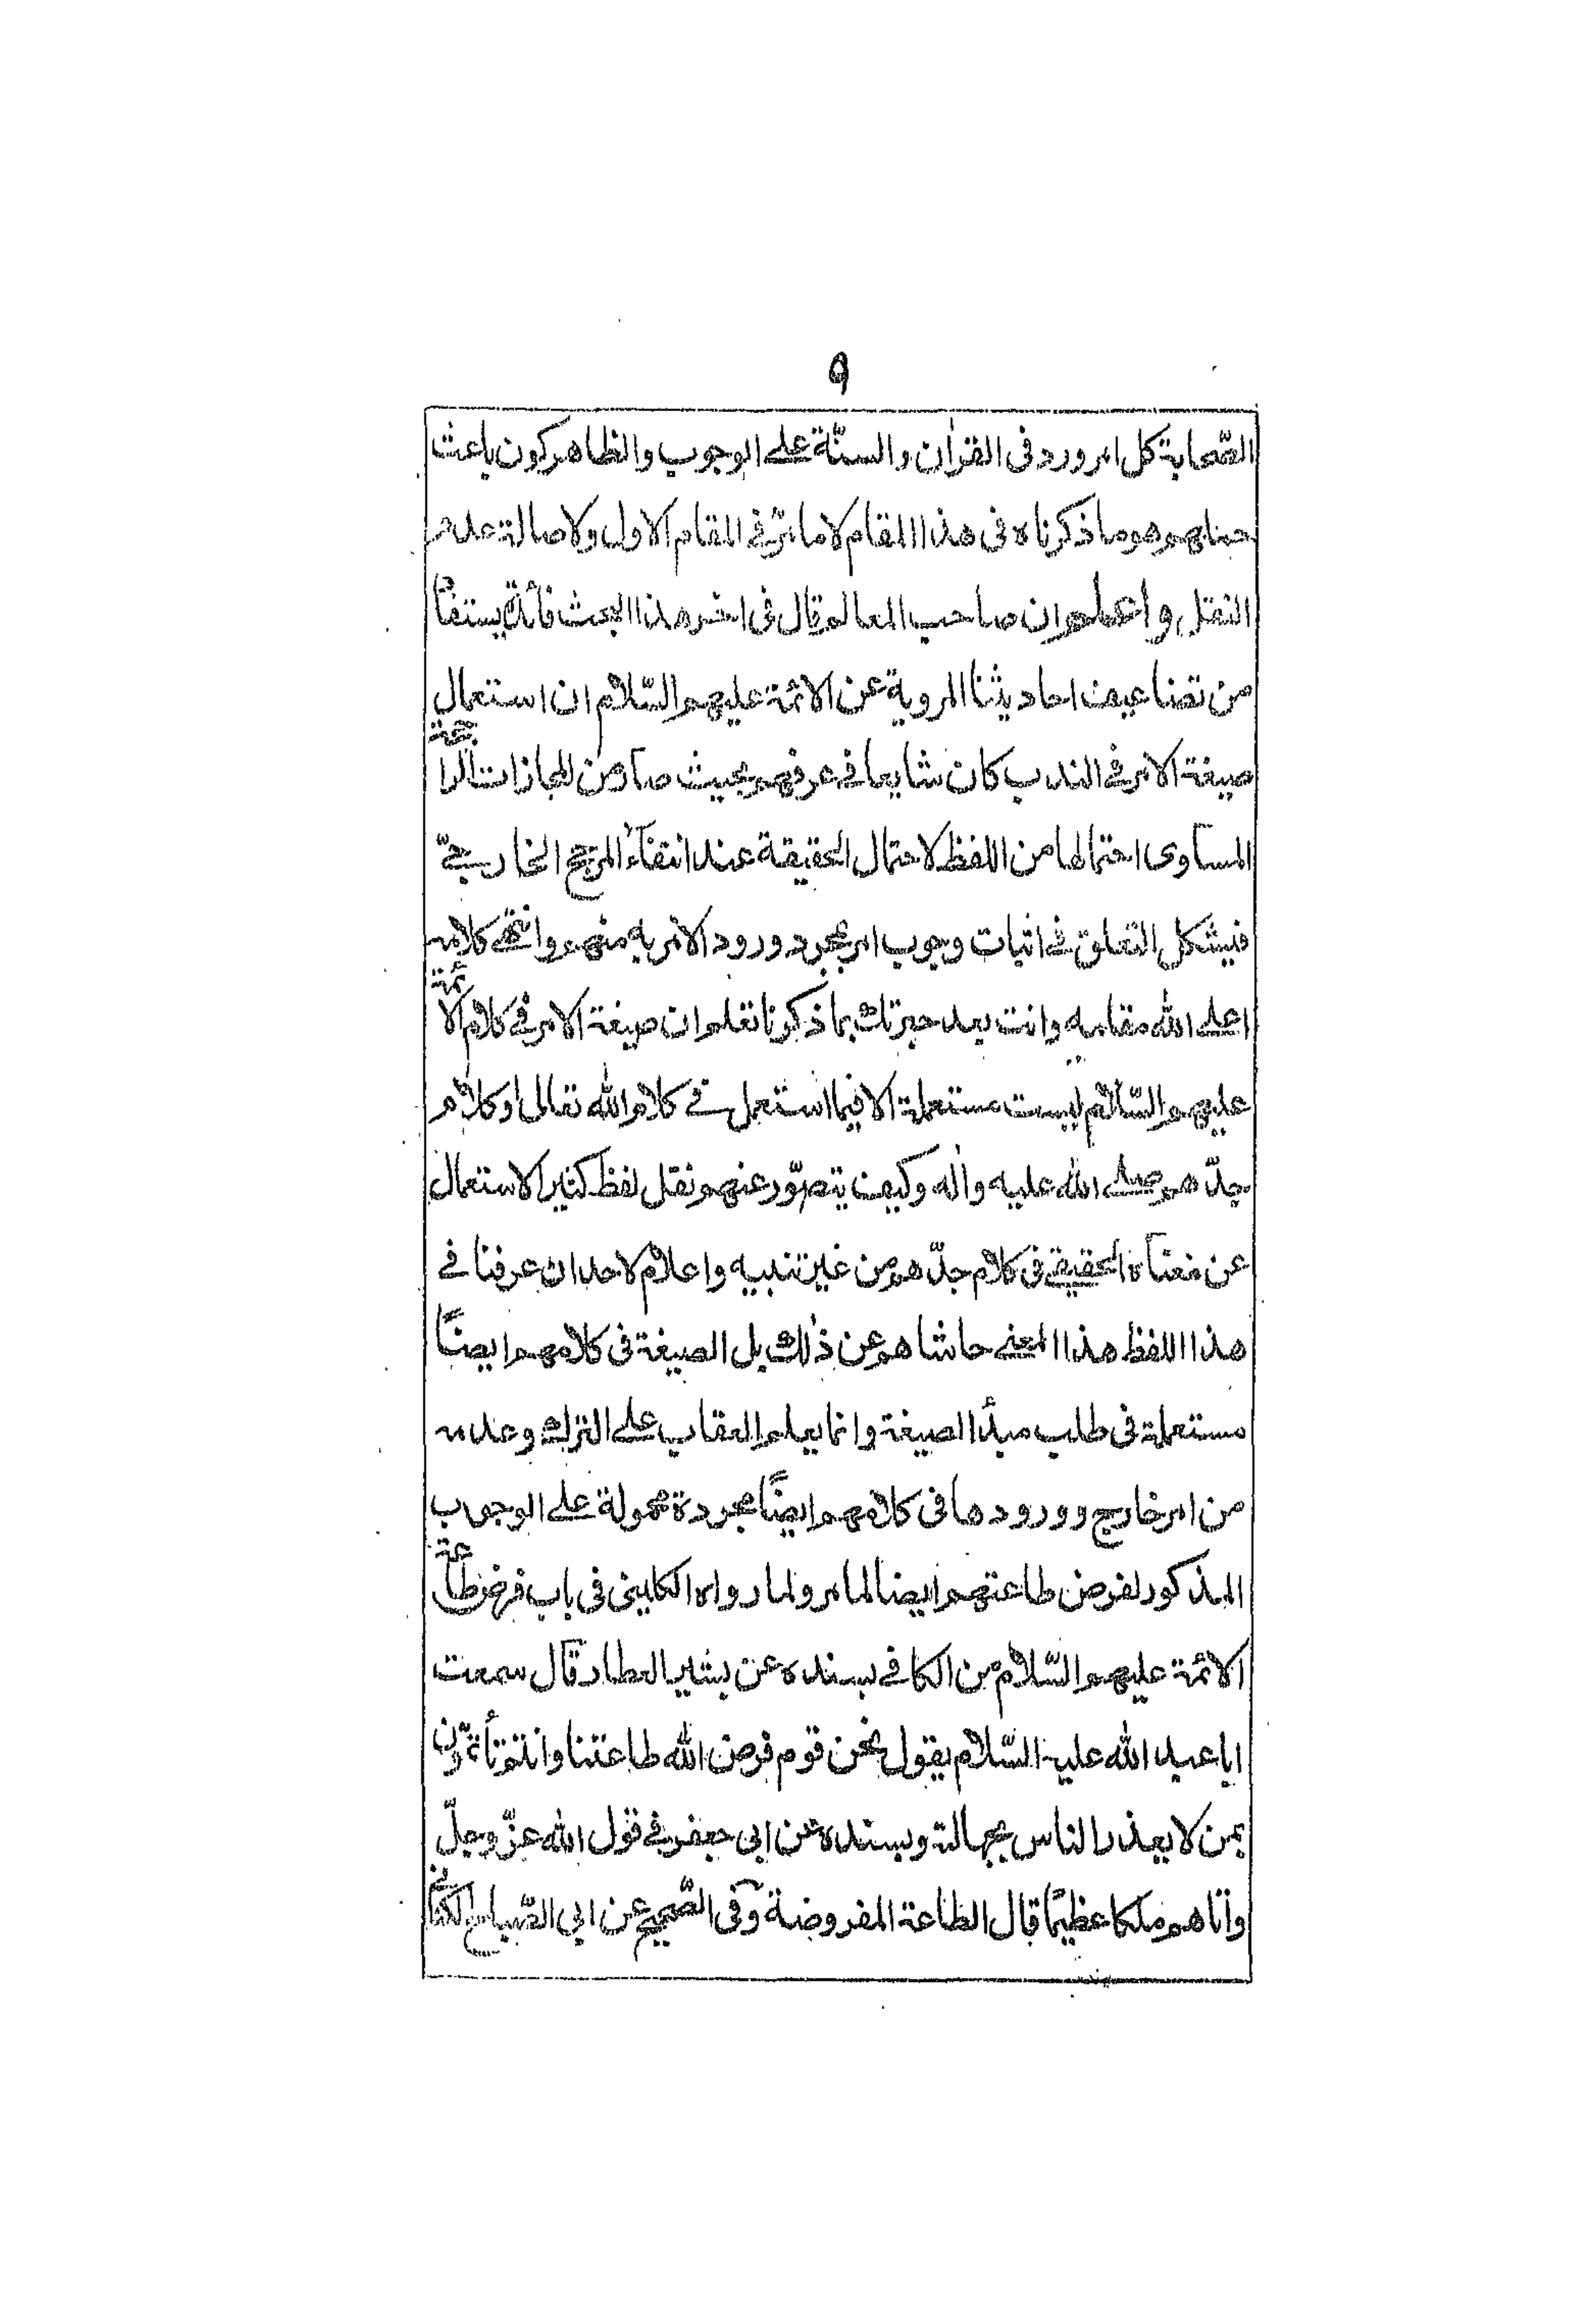 ٩
الصّحابة كل امر ورد فى القرأن والسنّة على الوجوب والظاهر كون باعث
حملهم هو ما ذكرناه فى هذا المقام لا ما مرّ فى المقام الاول ولاصالة عدم
النقل واعلم ان صاحب المعالم قال فى اخر هذا البحث فائدة يستفاد
من تضاعيف احاديثنا المروية عن الائمة عليهم السّلام ان استعمال
صيغة الامر فى الندب كان شايعا فى عرفهم بحيث صار من المجازات الراجحة
المساوى احتمالها من اللفظ لاحتمال الحقيقة عند انتفاء المرجح الخارجىّ
فيشكل التعلق فى اثبات وجوب امر بمجرد ورود الامر به منهم وانتهى كلامه
اعلى الله مقامه وانت بعد خبرتك بما ذكرنا تعلم ان صيغة الامر فى كلام الائمة
عليهم السّلام ليست مستعملة الا فيما استعمل فى كلام الله تعالى او كلام
جدّهم صلى الله عليه وأله وكيف يتصوّر عنهم نقل لفظ كثير الاستعمال
عن معناه الحقيقى فى كلام جدّهم من غير تنبيه واعلام لاحد ان عرفنا فى
هذا اللفظ هذا المعنى حاشاهم عن ذلك بل الصيغة فى كلامهم ايضًا
مستعملة فى طلب مبدأ الصيغة وانما يعلم العقاب على الترك وعدمه
من امر خارج وورودها فى كلامهم ايضًا مجردة محمولة على الوجوب
المذكور لفرض طاعتهم ايضا لما مر ولما رواه الكلينى فى باب فرض طاعة
الائمة عليهم السّلام من الكافى بسنده عن بشير العطار قال سمعت
ابا عبد الله عليه السّلام يقول نحن قوم فرض الله طاعتنا وانتم تأتمّون
بمن لا يعذر الناس بجهالته وبسنده عن ابى جعفر فى قول الله عزّ وجلّ
وأتاهم ملكا عظيمًا قال الطاعة المفروضة وفى الصّحيح عن ابى الصّباح الكنانى